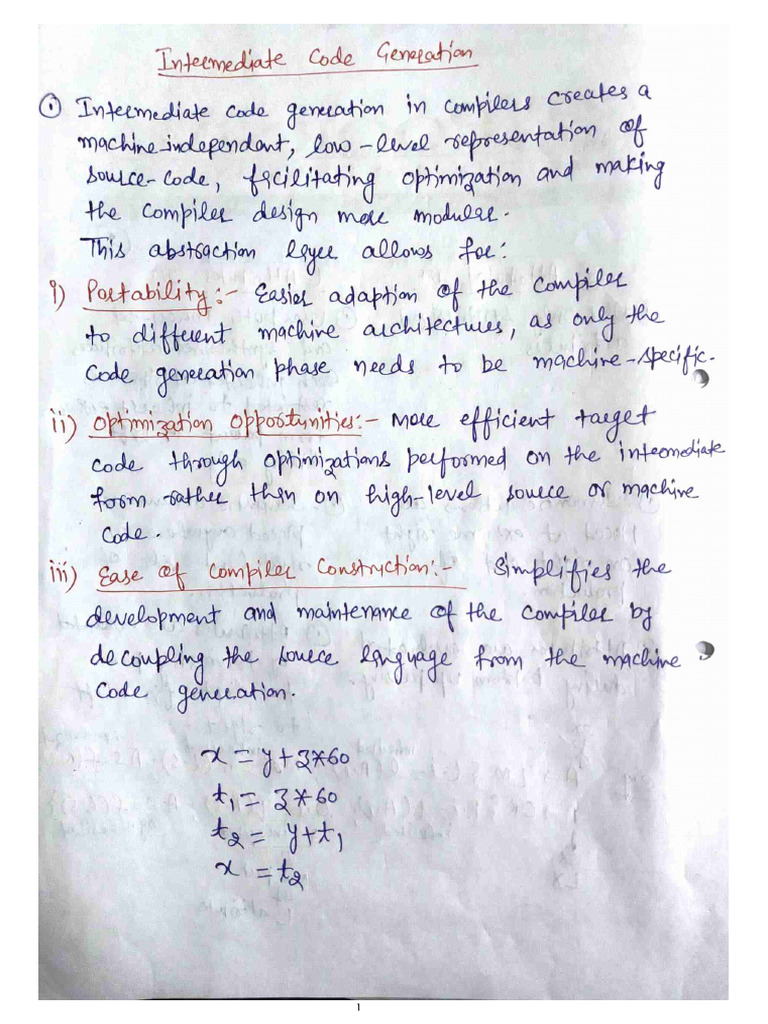 Intermediate Code Generation
① Intermediate code generation in compilers creates a
machine-independant, low-level representation of
source-code, facilitating optimization and making
the compiler design more modular.
This abstraction layer allows for:
i) Portability:- Easier adaption of the compiler
to different machine architectures, as only the
code generation phase needs to be machine-specific.
ii) Optimization Opportunities:- More efficient target
code through optimizations performed on the intermediate
form rather than on high-level source or machine
code.
iii) Ease of Compiler Construction:- Simplifies the
development and maintenance of the compiler by
decoupling the source language from the machine
code generation.
x = y + 3*60
t1 = 3*60
t2 = y+t1
x = t2
1